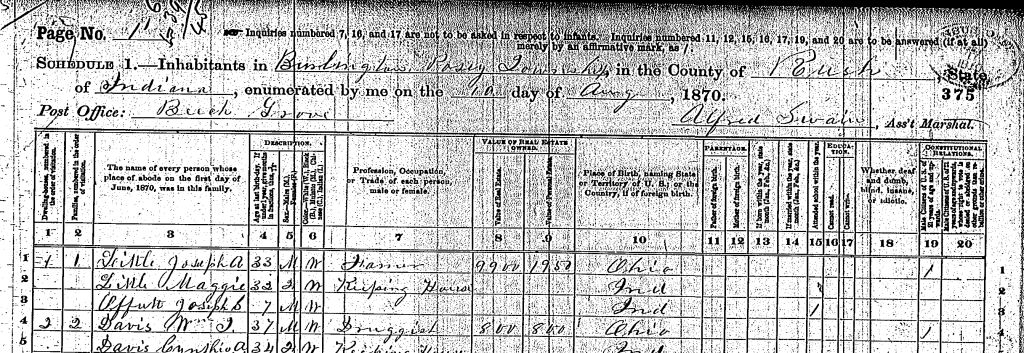 Page No. 1
Inquiries numbered 7, 16, and 17 are not to be asked in respect to infants. Inquiries numbered 11, 12, 15, 16, 17, 19, and 20 are to be answered (if at all)
merely by an affirmative mark, as /.
SCHEDULE 1.—Inhabitants in Burlington, Posey Township, in the County of Rush, State
of Indiana, enumerated by me on the 10 day of Aug, 1870.
375
Post Office: Beech Grove
Alfred Swain, Ass't Marshal.
Dwelling-houses, numbered in the order of visitation.
Families, numbered in the order of visitation.
The name of every person whose place of abode on the first day of June, 1870, was in this family.
DESCRIPTION.
Age at last birth-day. If under 1 year, give months in fractions, thus,
Sex.—Males (M.), Females (F.)
Color.—White (W.), Black (B.), Mulatto (M.), Chinese (C.), Indian (I.)
Profession, Occupation, or Trade of each person, male or female.
VALUE OF REAL ESTATE OWNED.
Value of Real Estate.
Value of Personal Estate.
Place of Birth, naming State or Territory of U. S.; or the Country, if of foreign birth.
PARENTAGE.
Father of foreign birth.
Mother of foreign birth.
If born within the year, state month (Jan., Feb., &c.)
If married within the year, state month (Jan., Feb., &c.)
Attended school within the year.
EDUCATION.
Cannot read.
Cannot write.
Whether deaf and dumb, blind, insane, or idiotic.
CONSTITUTIONAL RELATIONS.
Male Citizens of U. S. of 21 years of age and upwards.
1 2 3 4 5 6 7 8 9 10 11 12 13 14 15 16 17 18 19 20
1 1 1 Joseph A 33 M W Farmer 9900 1950 Ohio 1 1
2 Maggie 32 W Keeping House Ind 2
3 Offutt Joseph 7 M W Ind 1 3
4 2 2 Davis Wm J. 37 M W Druggist 800 800 Ohio 1 4
5 Davis Cynthia A 34 W Keeping House Ind 5